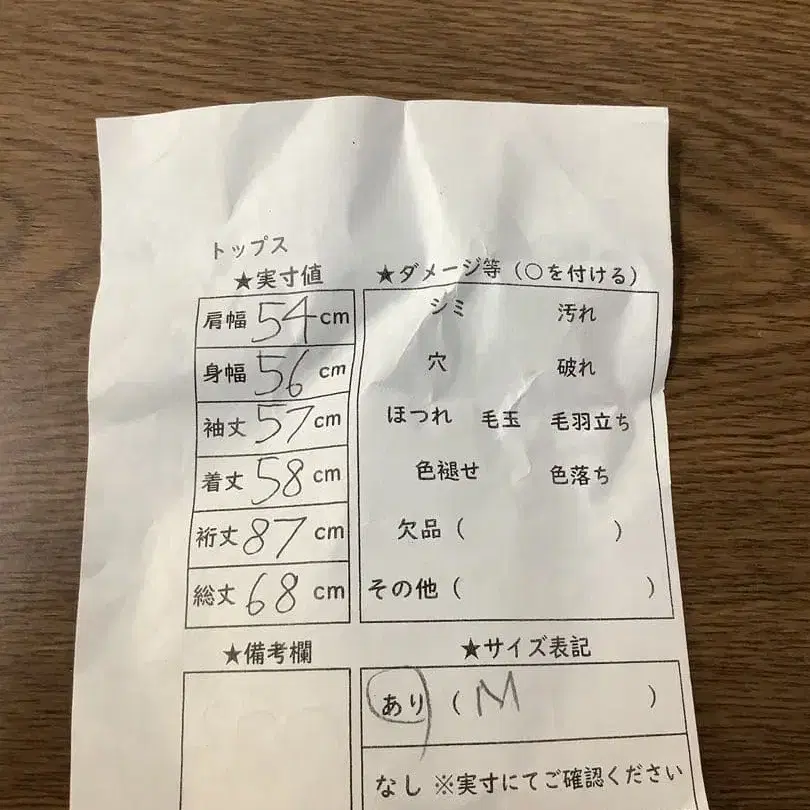 トップス
★実寸値
肩幅 54 cm
身幅 56 cm
袖丈 57 cm
着丈 58 cm
裄丈 87 cm
総丈 68 cm
★ダメージ等（○を付ける）
シミ 汚れ
穴 破れ
ほつれ 毛玉 毛羽立ち
色褪せ 色落ち
欠品（ ）
その他（ ）
★備考欄
★サイズ表記
あり（ M ）
なし ※実寸にてご確認ください